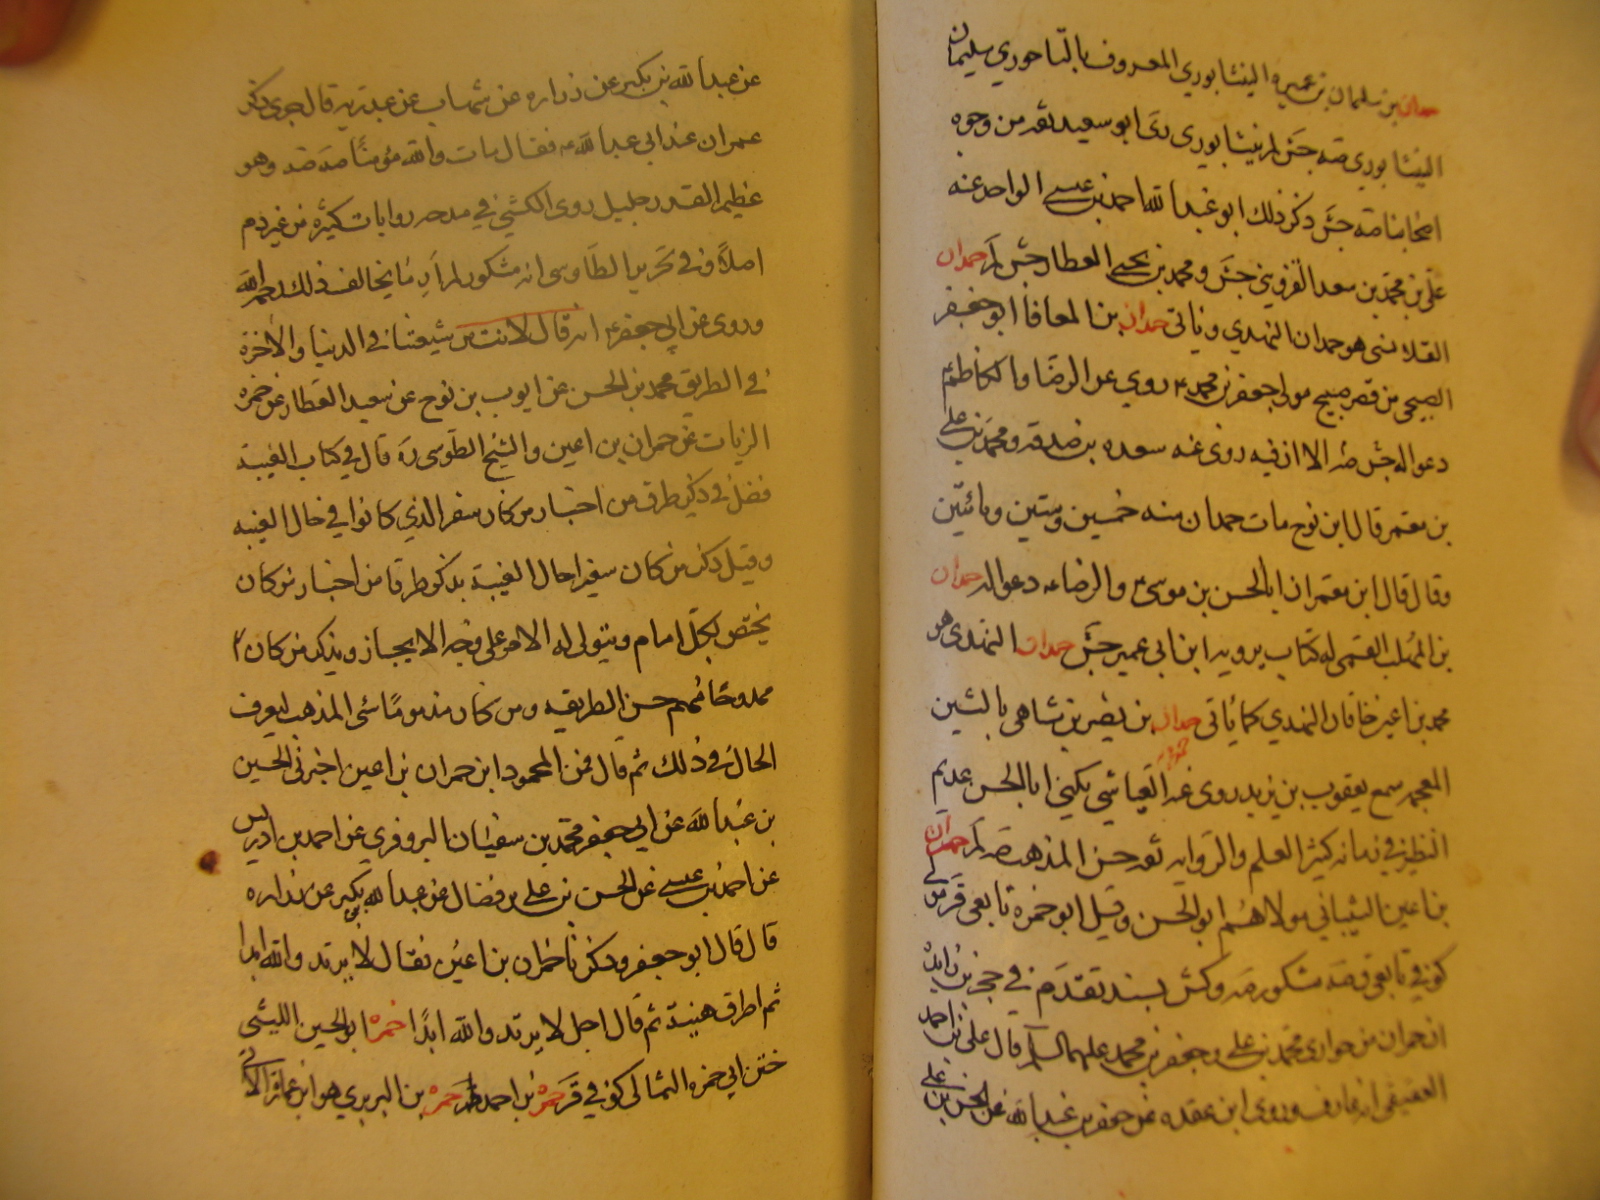 حمدان بن سليمان بن عميره النيشابوري المعروف بالتاجوري سليمان
النيشابوري صه جش لم نيشابوري دي ابو سعيد ثقه من وجوه
اصحابنا صه جش ذكر ذلك ابو عبد الله احمد بن عيسى الواحد عنه
علي بن محمد بن سعد القزويني جش و محمد بن يحيى العطار جش لم حمدان
القلانسي هو حمدان النهدي و ياتي حمدان بن المعافا ابو جعفر
الصبيحي من قصر صبيح مولى جعفر بن محمد ع روي عن الرضا و الكاظم ع
دعوا له جش صه الا ان فيه روى عنه سعده بن صدقه و محمد بن علي
بن معمر قال ابن نوح مات حمدان سنه خمسين وستين و مائتين
وقال قال ابن معمر ان ابا الحسن بن موسى ع والرضا ع دعوا له حمدان
بن المهلب القمي له كتاب يرويه ابن ابي عمير جش حمدان النهدى هو
محمد بن احمد خاقان النهدي كما ياتى حمدان بن نصير بن شاهي بالشين
المعجمه سمع يعقوب بن يزيد روى عنه العياشي يكنى ابا الحسن عديم
النظير في زمانه كثير العلم والروايه ثقه حسن المذهب صه لم حمران
بن اعين الشيباني مولاهم ابو الحسن و قيل ابو حمزه تابعي ق ر من لي
كوفي تابعي ق صه مشكور صه و كش بسند تقدم في حجر بن زايده
ان حمران من حواري محمد بن علي و جعفر بن محمد عليهما السلام قال علي بن احمد
العقيقي انه عارف وروى ابن عقده عن جعفر بن عبد الله عن الحسن بن علي
عن عبد الله بن بكير عن زراره عن شهاب بن عبد ربه قال جرى ذكر
عمران عند ابي عبد الله ع فقال مات والله مؤمنًا صه ضد وهو
عظيم القدر جليل روى الكشي في مدحه روايات كثيره من غير ذم
اصلا و في تحرير الطاوسى انه مشكور لم ار ما يخالف ذلك رحمه الله
وروى عن ابي جعفر ع انه قال لانت من شيعتنا في الدنيا و الاخرة
في الطريق محمد بن الحسن عن ايوب بن نوح عن سعيد العطار عن حمزه
الزيات عن حمران بن اعين و الشيخ الطوسى ره قال في كتاب الغيبة
فصل في ذكر طرف من اخبار من كان سفر الذي كانوا في حال الغيبه
و قيل ذكر من كان سفيرا حال الغيبة بذكر طرفا من اخبار من كان
يختص بكل امام و يتولى له الامر على وجه الايجاز و يذكر من كان
ممدوحا منهم حسن الطريقه و من كان مذموما سئ المذهب ليعرف
الحال في ذلك ثم قال فمن المحمود ابن حمران بن اعين اخبرني الحسين
بن عبد الله عن ابي جعفر محمد بن سفيان البزوفري عن احمد بن ادريس
عن احمد بن عيسى عن الحسن بن علي بن فضال عن عبد الله بن بكير عن زراره
قال قال ابو جعفر و ذكرنا حمران بن اعين فقال لا يرتد والله ابدا
ثم اطرق هنيئة ثم قال اجل لا يرتد والله ابدًا حمزه ابو الحسين الليثي
ختن ابي حمزه الثمالى كوفي ق ر حمزه بن احمد لم حمزه بن البربري هو ابن عمارة الاتى